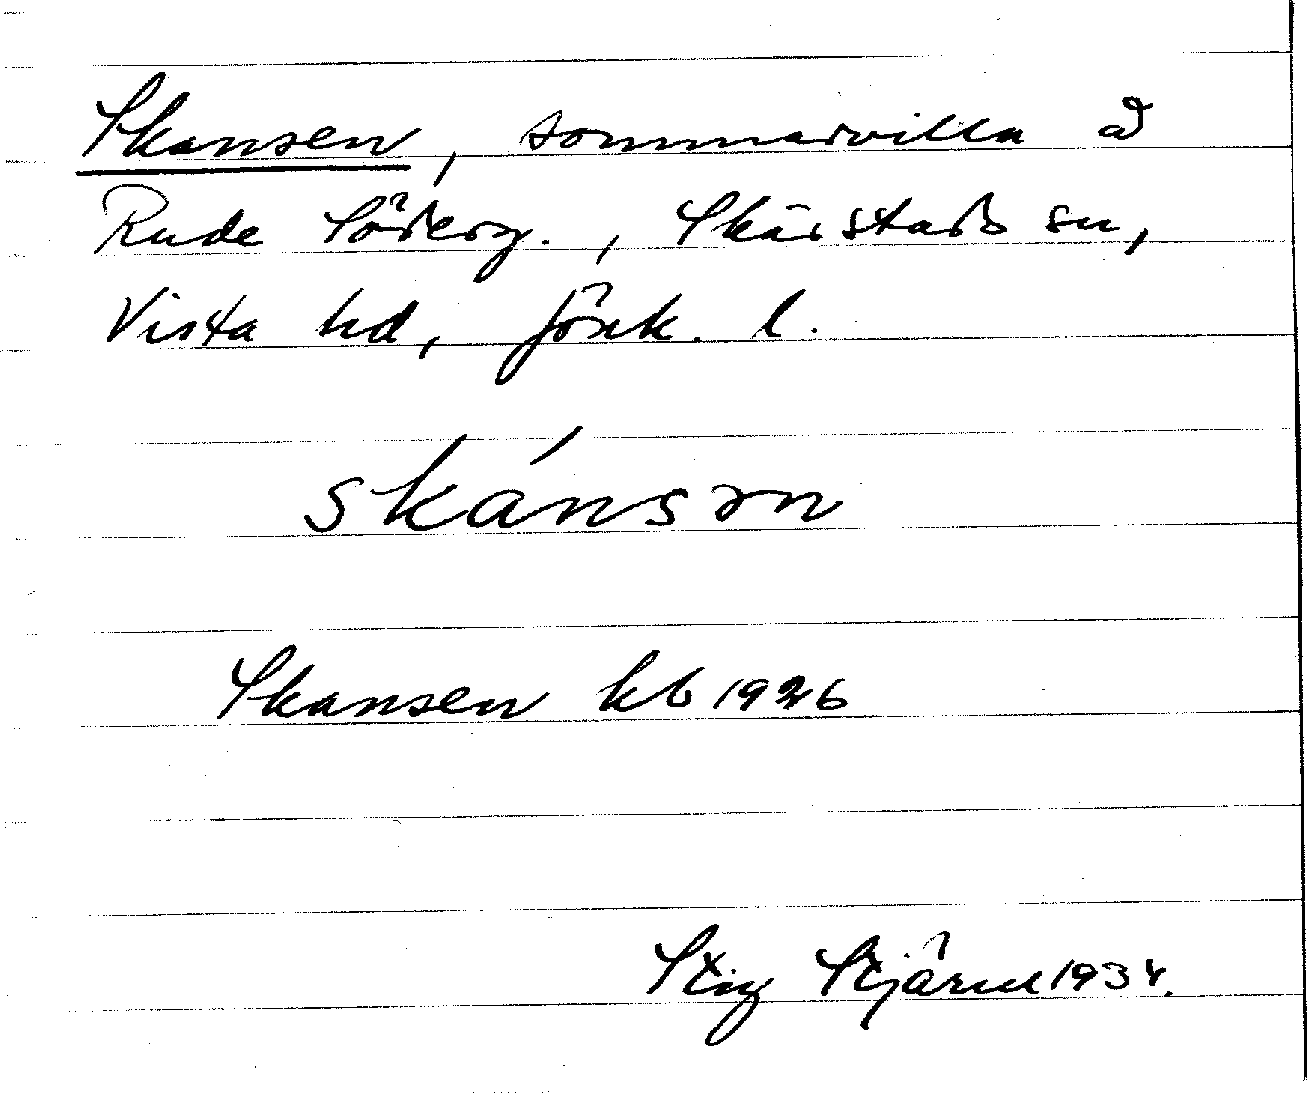 Skansen, sommarvilla å
Rude Söderg., Skärstads sn,
Vista hd, Jönk. l.
skánsən
Skansen kb 1926
Stig Stjärne 1934.